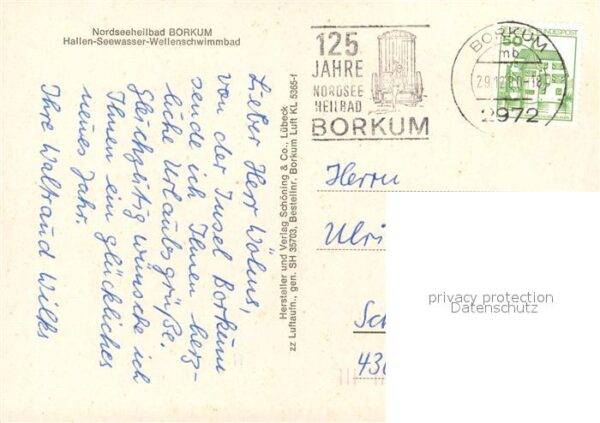 Nordseeheilbad BORKUM
Hallen-Seewasser-Wellenschwimmbad
Lieber Herr Wölms,
von der Insel Borkum
sende ich Ihnen herz-
liche Urlaubsgrüße.
Gleichzeitig wünsche ich
Ihnen ein glückliches
neues Jahr.
Ihre Waltraud Wilks
Hersteller und Verlag Schöning & Co., Lübeck
zz Luftaufn., gen. SH 35703, Bestellnr. Borkum Luft KL 5365-f
125
JAHRE
NORDSEE
HEILBAD
BORKUM
BORKUM
mb
29.12.80-18
2972
50
BUNDESPOST
Herrn
Ulri
Sc
430
privacy protection
Datenschutz